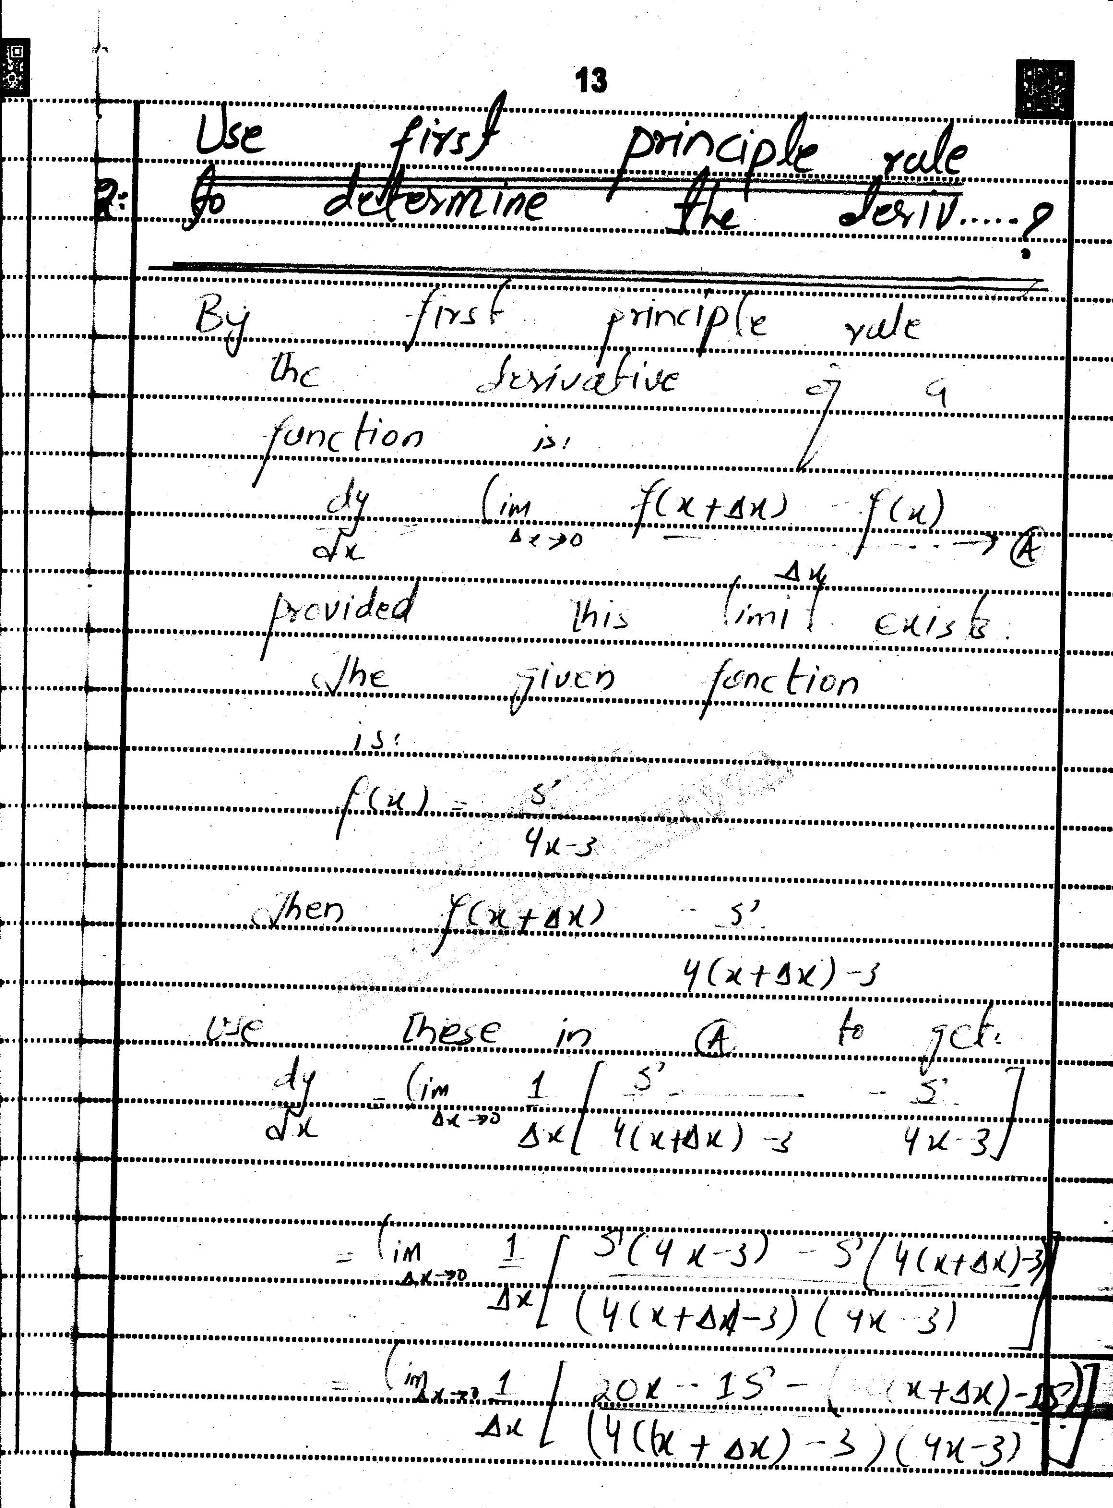 13
Use first principle rule
Q: to determine the deriv.....?
By first principle rule
the derivative of a
function is:
dy/dx = lim Δx→0 f(x+Δx) - f(x) / Δx → Ⓐ
provided this limit exists.
The given function
is:
f(x) = 5 / 4x-3
Then f(x+Δx) = 5 / 4(x+Δx)-3
Use these in Ⓐ to get:
dy/dx = lim Δx→0 1/Δx [ 5 / 4(x+Δx)-3 - 5 / 4x-3 ]
= lim Δx→0 1/Δx [ 5(4x-3) - 5(4(x+Δx)-3) / (4(x+Δx)-3)(4x-3) ]
= lim Δx→0 1/Δx [ 20x-15-( (x+Δx)-15) / (4(x+Δx)-3)(4x-3) ]